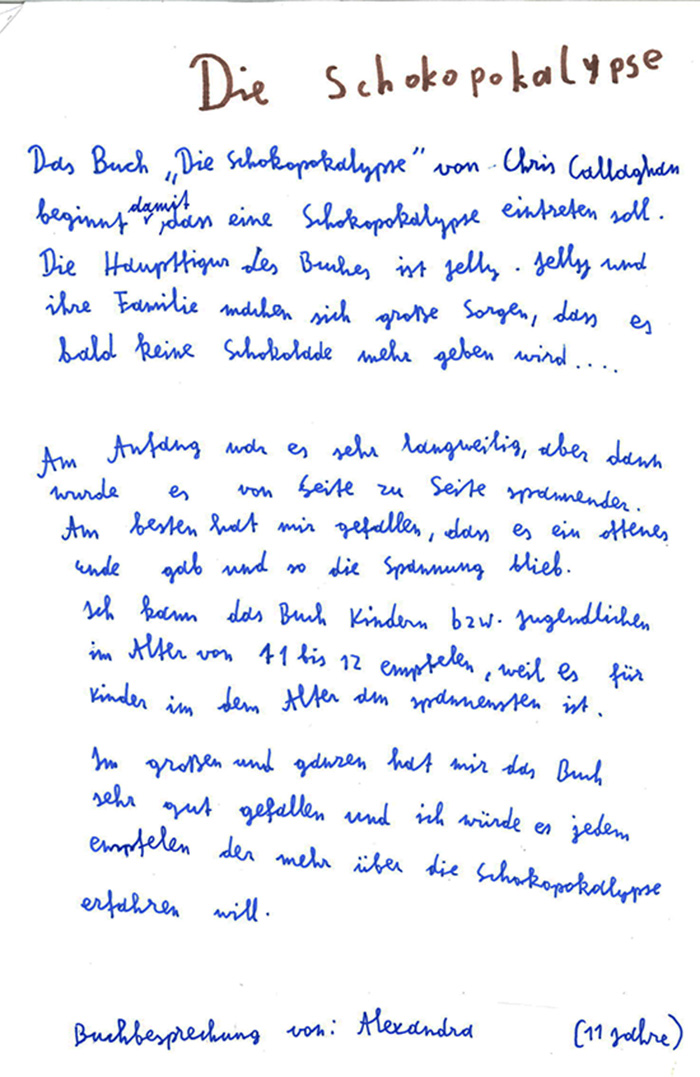 Die Schokopokalypse
Das Buch „Die Schokopokalypse" von Chris Callaghan
beginnt damit, dass eine Schokopokalypse eintreten soll.
Die Hauptfigur des Buches ist Jelly. Jelly und
ihre Familie machen sich große Sorgen, dass es
bald keine Schokolade mehr geben wird....
Am Anfang war es sehr langweilig, aber dann
wurde es von Seite zu Seite spannender.
Am besten hat mir gefallen, dass es ein offenes
ende gab und so die Spannung blieb.
Ich kann das Buch Kindern bzw. Jugendlichen
im Alter von 11 bis 12 empfelen, weil es für
Kinder im dem Alter am spannensten ist.
Im großen und ganzen hat mir das Buch
sehr gut gefallen und ich würde es jedem
empfelen der mehr über die Schokopokalypse
erfahren will.
Buchbesprechung von: Alexandra (11 Jahre)